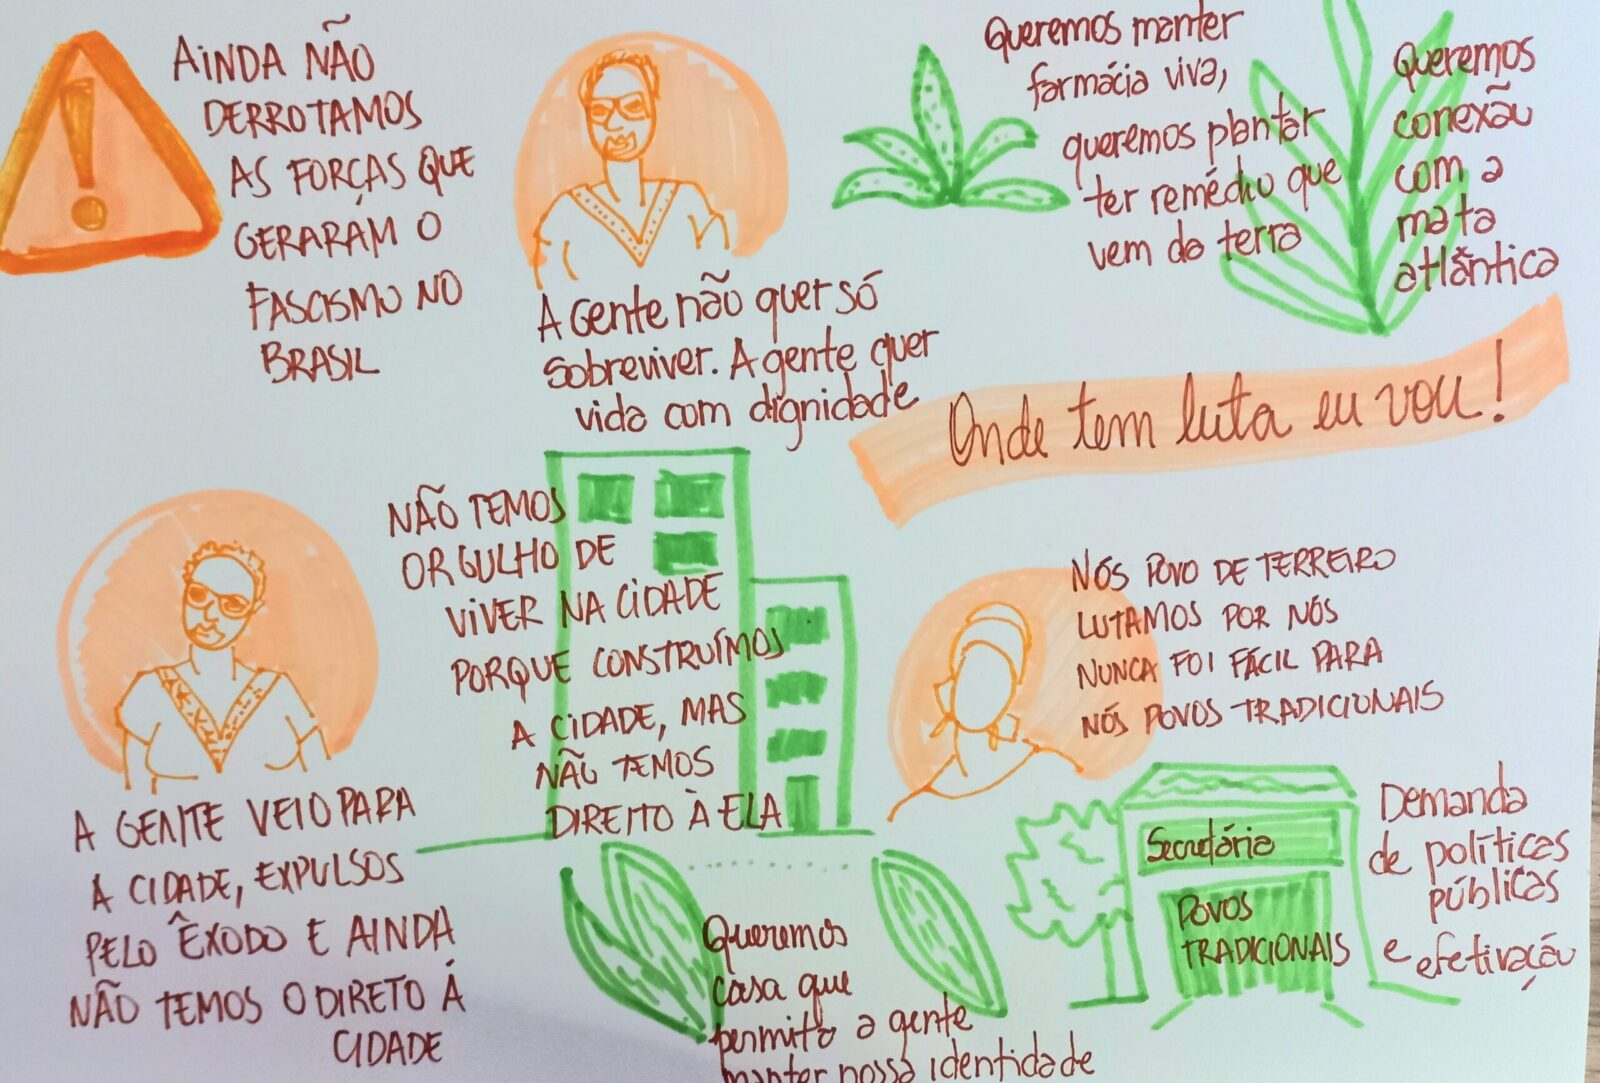 AINDA NÃO
DERROTAMOS
AS FORÇAS QUE
GERARAM O
FASCISMO NO
BRASIL
A Gente não quer só
sobreviver. A gente quer
vida com dignidade
Queremos manter
farmácia viva,
queremos plantar
ter remédio que
vem da terra
Queremos
conexão
com a
mata
atlântica
Onde tem luta eu vou!
A GENTE VEIO PARA
A CIDADE, EXPULSOS
PELO ÊXODO E AINDA
NÃO TEMOS O DIRETO À
CIDADE
NÃO TEMOS
ORGULHO DE
VIVER NA CIDADE
PORQUE CONSTRUÍMOS
A CIDADE, MAS
NÃO TEMOS
DIREITO À ELA
NÓS POVO DE TERREIRO
LUTAMOS POR NÓS
NUNCA FOI FÁCIL PARA
NÓS POVOS TRADICIONAIS
Queremos
casa que
permita a gente
manter nossa identidade
Secretária
POVOS
TRADICIONAIS
Demanda
de políticas
públicas
e efetivação